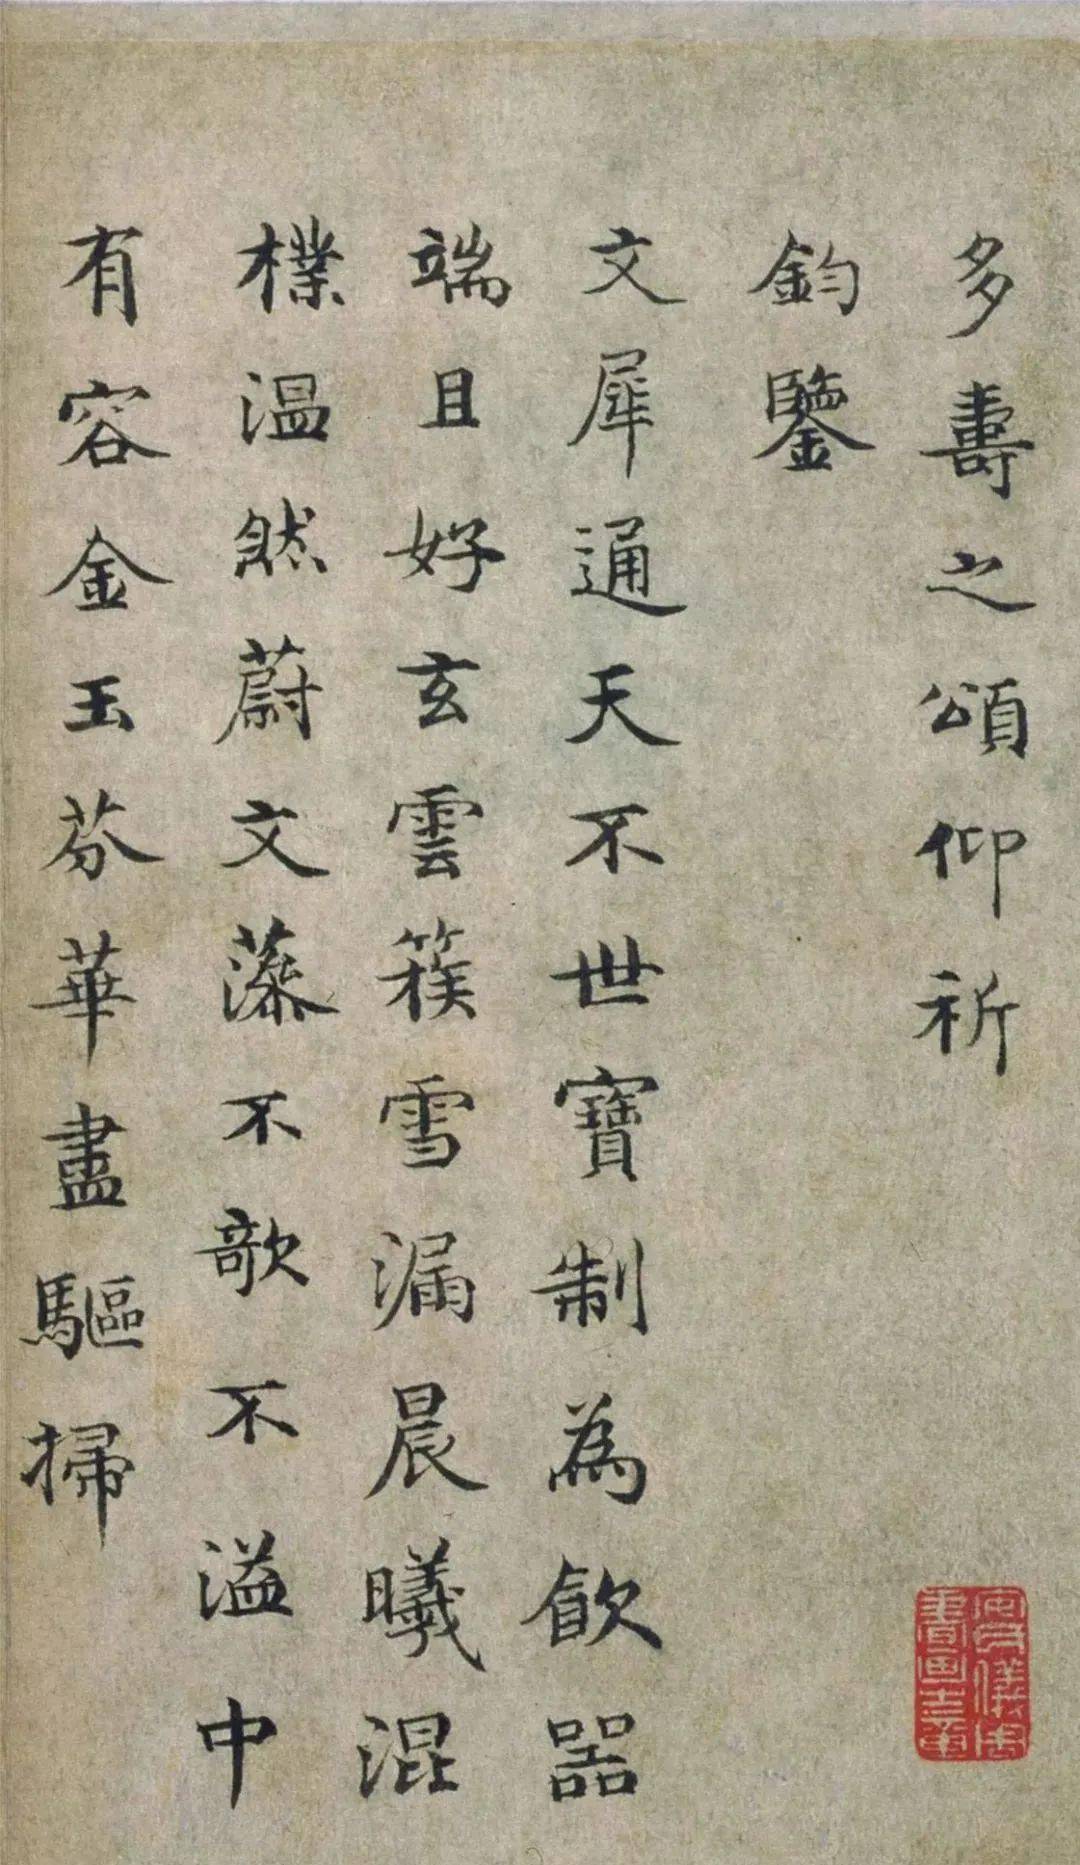 多壽之頌仰祈
鈞鑒
文犀通天不世寶制為飲器
端且好玄雲簇雪漏晨曦混
樸溫然蔚文藻不欹不溢中
有容金玉芬華盡驅掃
安儀周
書畫之章